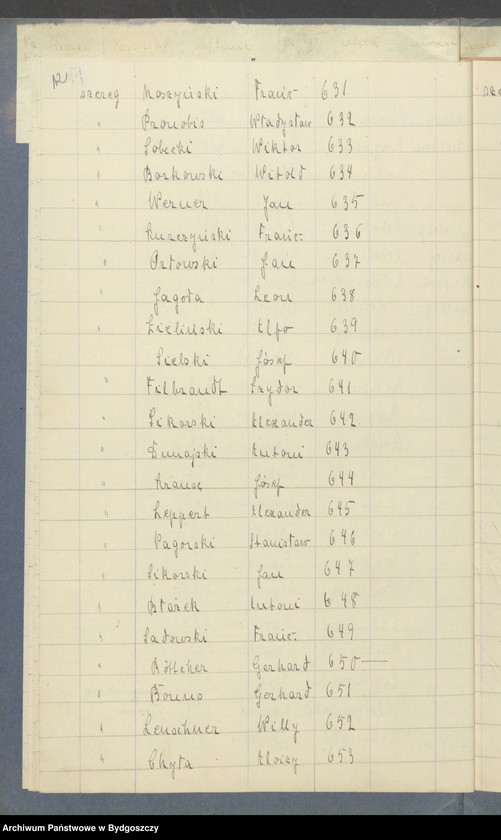 12
szereg Moszyński Franc- 631
" Pronobis Władysław 632
" Sobecki Wiktor 633
" Borkowski Witold 634
" Werner Jan 635
" Franc- 636
" Jan 637
" Jagoła Leon 638
" Zieliński 639
" Sielski Józef 640
" Filbrandt Izydor 641
" Sikorski Alexander 642
" Dunajski Antoni 643
" Krause Józef 644
" Leppert Alexander 645
" Pagorski Stanisław 646
" Sikorski Jan 647
" Błażek Antoni 648
" Sadowski Franc- 649
" Böttcher Gerhard 650—
" Gerhard 651
" Leuschner Willy 652
" Chyła Alojzy 653
Archiwum Państwowe w Bydgoszczy